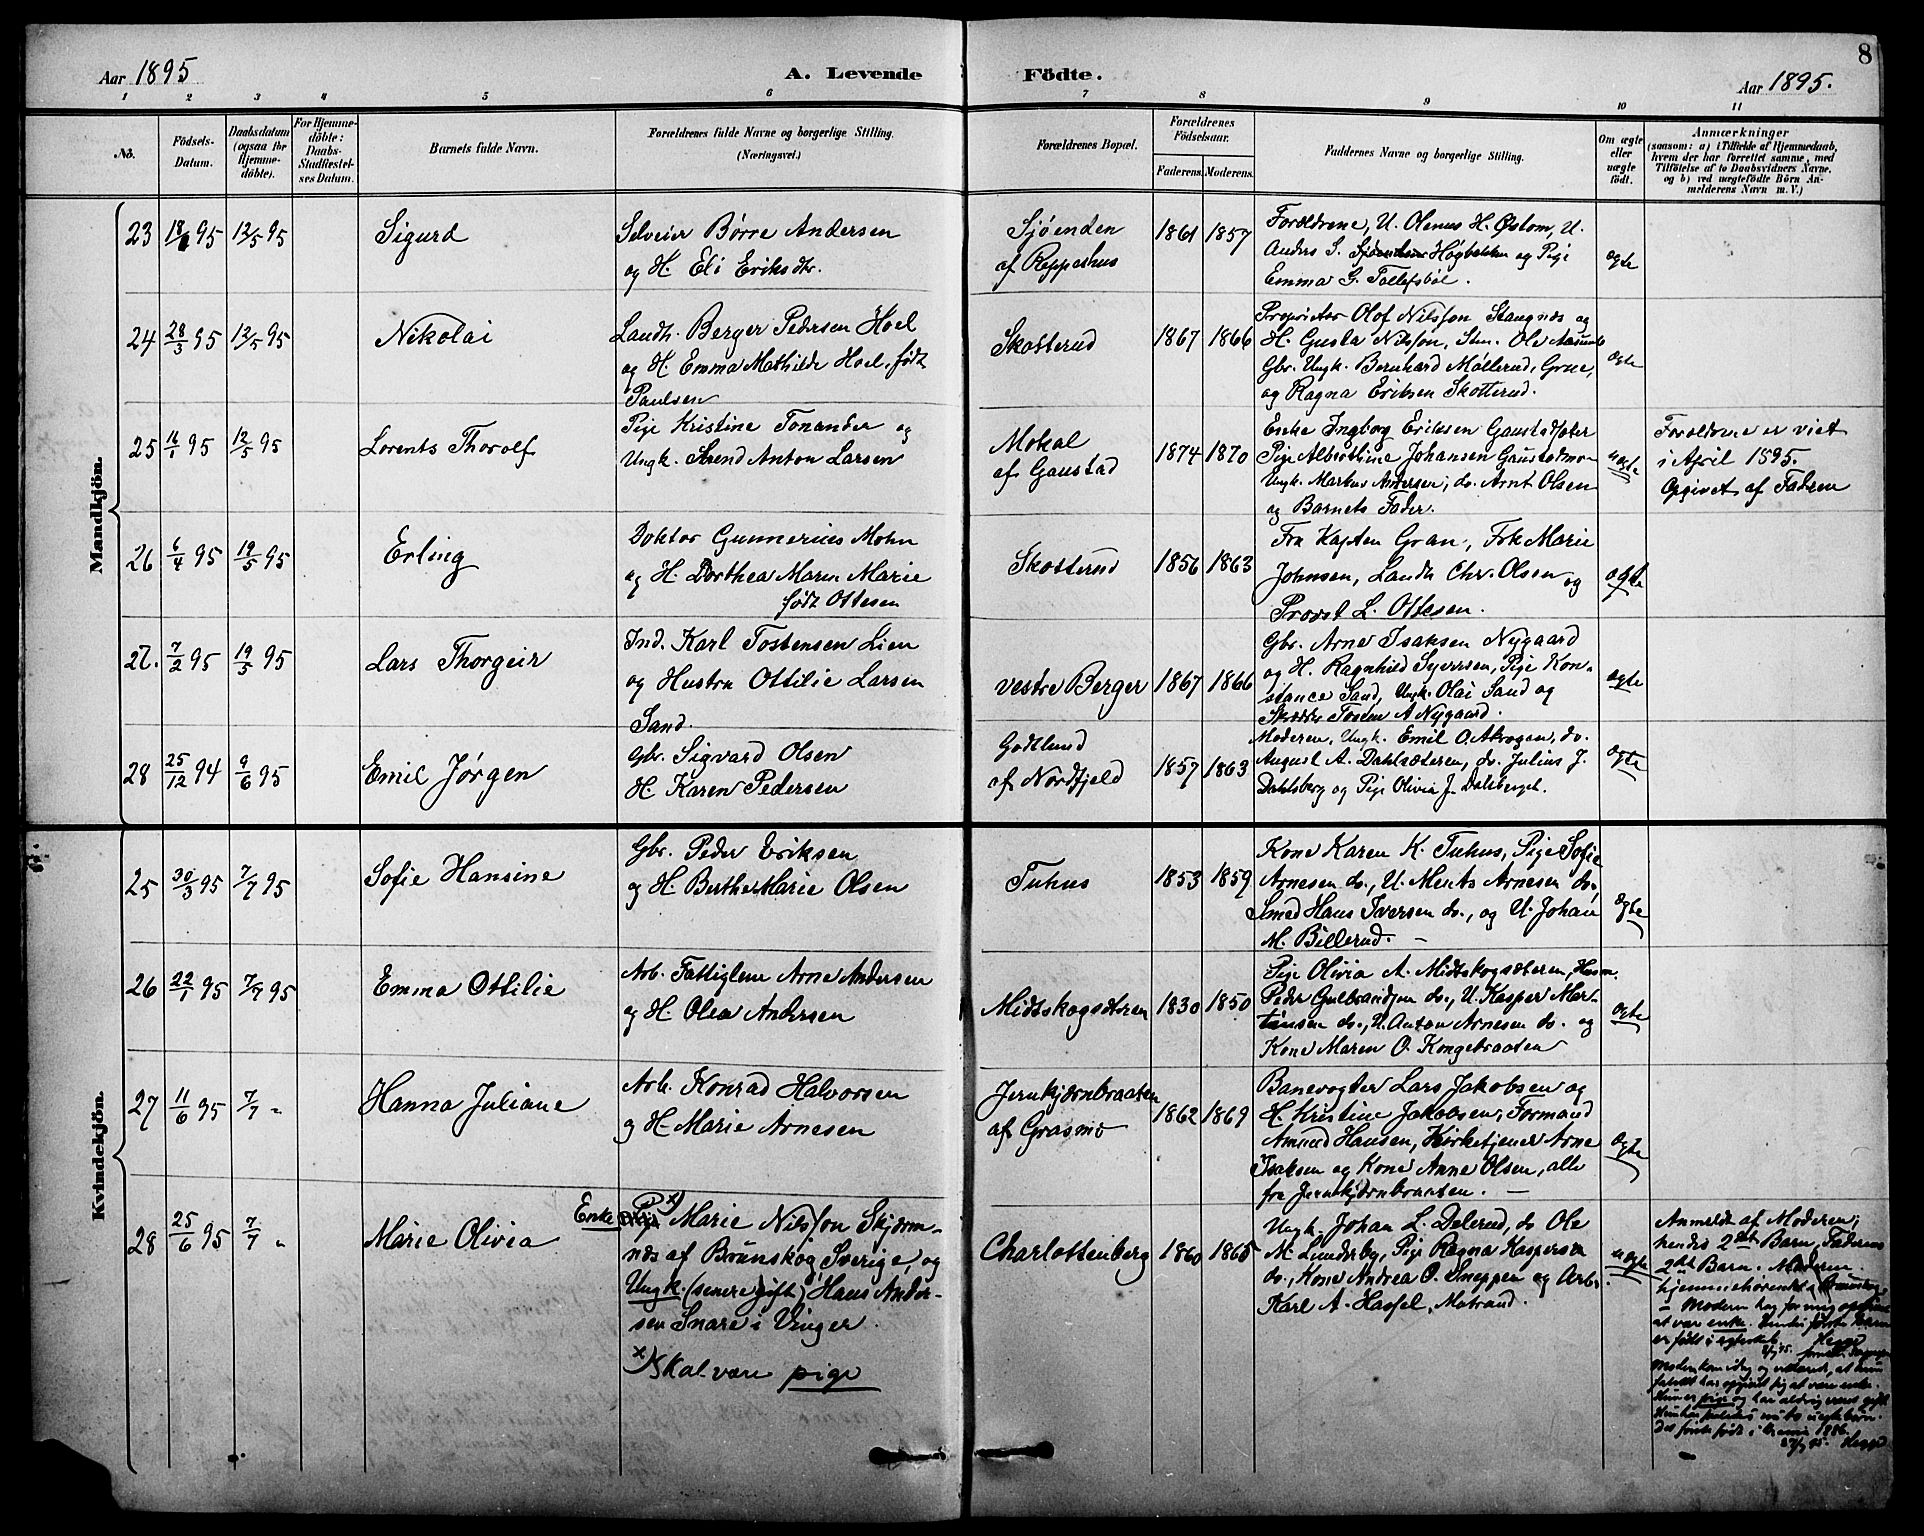 8
Aar 1895
A. Levende Födte.
Aar 1895.
1 2 3 4 5 6 7 8 9 10 11
No.
Födsels-Datum.
Daabsdatum (ogsaa for Hjemme-döbte).
For Hjemme-döbte: Daabs-Stadfæstel-ses Datum.
Barnets fulde Navn.
Forældrenes fulde Navne og borgerlige Stilling.
(Næringsvei.)
Forældrenes Bopæl.
Forældrenes Födselsaar.
Faderens. Moderens.
Faddernes Navne og borgerlige Stilling.
Om ægte eller uægte födt.
Anmærkninger
(saasom: a) i Tilfælde af Hjemmedaab,
hvem der har forrettet samme, med
Tilföielse af to Daabsvidners Navne,
og b) ved uægtefödte Börn An-
melderens Navn m. V.)
Mandkjön.
23 95 12/5 95
Sigurd
Selveier Børre Andersen
og H. Eli Eriksdtr.
Sjøenden
af Reppeshus
1861 1857
Foreldrene, U. Olenus H. Østom, U.
Anders S. Høgbakken og Pige
Emma G. Tollefsbøl.
ægte
24 28/3 95 12/5 95
Nikolai
Landh. Berger Pedersen Hoel
og H. Emma Mathilde Hoel, født
Paulsen
Skotterud
1867 1866
Proprietær Olof Nilsson Stangnes og
H. Gusta Nilsson, Stm. Ole Aasum
Gbr. Ungk. Bernhard Møllerud, Grue,
og Ragna Eriksen Skotterud.
ægte
25 16/1 95 12/5 95
Lorents Thorolf
Pige Kristine Tonander og
Ungk. Svend Anton Larsen
Mokal
af Gaustad
1874 1870
Enke Ingborg Eriksen Gaustadsæter
Pige Albertine Johansen Gaustadmo-
Ungk. Markus Andersen, do. Arnt Olsen
og Barnets Fader.
uægte
Foreldrene er viet
i April 1895.
Opgivet af Faderen
26 6/4 95 19/5 95
Erling
Doktor Gunnerius Mohn
og H. Dorthea Maren Marie
født Ottesen
Skotterud
1856 1863
Fru Kaptein Gran, Frk Marie
Johnsen, Landh Chr. Olsen og
Provst L. Ottesen.
ægte
27. 7/2 95 19/5 95
Lars Thorgeir
Ind. Karl Tostensen Lien
og Hustru Ottilie Larsen
Sand.
vestre Berger
1867 1866
Gbr. Arne Isaksen Nygaard
og H. Ragnhild Syversen, Pige Kon-
stance Sand, Ungk. Olai Sand og
Skrædder Tosten A Nygaard.
ægte
28 25/12 94 9/6 95
Emil Jørgen
Gbr. Sigvard Olsen
H. Karen Pedersen
Godtlund
af Nordfjeld
1857 1863
Moderen, Ungk. Emil O. Akrogen, do.
August A. Dahlsæteren, do. Julius J.
Dahlsberg og Pige Olivia J. Dalsberget.
ægte
Kvindekjön.
25 30/3 95 7/7 95
Sofie Hansine
Gbr. Peder Eriksen
og H. Berthe Marie Olsen
Tuhus
1853 1859
Kone Karen K. Tuhus, Pige Sofie
Arnesen do., U. Ments Arnesen do.,
Smed Hans Iversen do., og U. Johan
M. Billerud. –
ægte
26 22/1 95 7/7 95
Emma Ottilie
Arb. Fattiglem Arne Andersen
og H. Olea Andersen
Midtskogsæteren
1830 1850
Pige Olivia A. Midtskogsæteren, Husm.
Peder Gulbrandsen do., U. Kasper Mar-
tinsen do., U. Anton Arnesen do. og
Kone Maren O. Kongebraaten
ægte
27 11/6 95 7/7 "
Hanna Juliane
Arb. Konrad Halvorsen
og H. Marie Arnesen
Jernkjernbraaten
af Grasmo
1862 1869
Banevogter Lars Jakobsen og
H. Kristine Jakobsen, Formand
Amund Hansen, Kirketjener Arne
Isaksen og Kone Anne Olsen, alle
fra Jernkjernbraaten. –
ægte
28 25/6 95 7/7 "
Marie Olivia
Enke Pige x) Marie Nilsson Skjerm-
næs af Brunskog, Sverige, og
Ungk. (senere gift) Hans Ander-
sen Snare i Vinger.
x) Skal være pige
Charlottenberg
1860 1865
Ungk. Johan L. Delerud, do Ole
M. Lunderby, Pige Ragna Kaspersen
do., Kone Andrea O. Sneppen og Arb.
Karl A. Hassel, Matrand.
uægte
Anmeldt af Moderen;
hendes 2det Barn, Faderens
2det Barn. Moderen
hjemmehørende i Brunskog.
– Modern har for mig opgivet
at var enke. Hendes første Barn
er født i egteskab. Hegge
Modern kom idag og erklærede, at hun
falskt har opgivet sig at være enke.
Hun er pige og har aldrig været gift
Hun har saaledes uægte børn.
Det første født i 1886.
Hegge